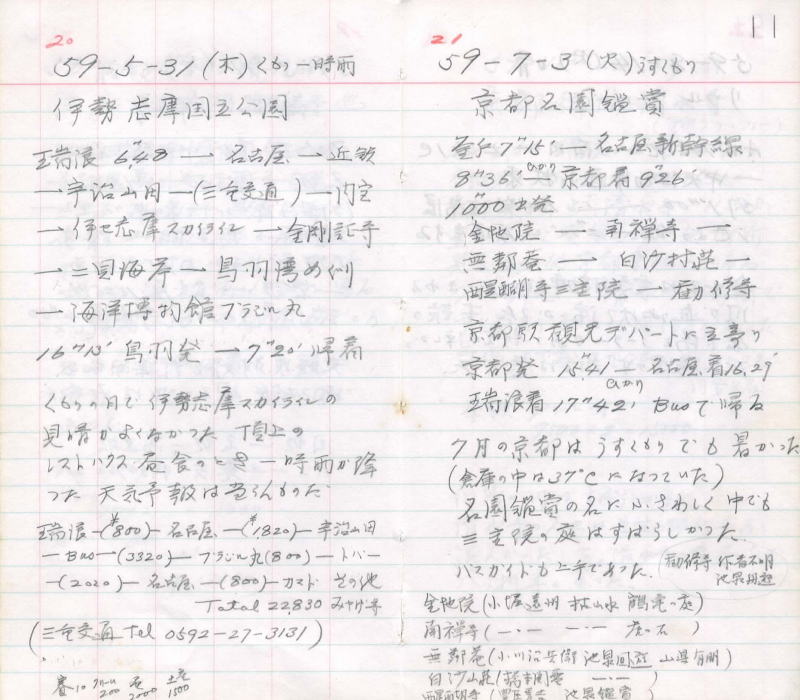 20
59-5-31(木)くもり一時雨
伊勢志摩国立公園
瑞浪 6"48 → 名古屋 → 近鉄
→宇治山田 →(三重交通)→内宮
→伊セ志摩スカイライン→金剛証寺
→二見海岸→鳥羽湾めぐり
→海洋博物館ブラジル丸
16"13' 鳥羽発 → 7"20' 帰着
くもりの日で伊勢志摩スカイラインの
見晴がよくなかった 頂上の
レストハウス昼食のとき一時雨が降
った 天気予報は
瑞浪-(¥800)-名古屋-(¥1820)-宇治山田
-Bus-(3320)-ブラジル丸(800)-トバ-
-(2020)-名古屋-(800)- その他
Total 22,830 みやげ等
(三重交通 Tel 0592-27-3131)
200 2000 1500
21
11
59-7-3(火)うすくもり
京都名園鑑賞
7"15' → 名古屋新幹線
8"36' ひかり 京都着 9"26'
10"00 出発
金地院 → 南禅寺
無鄰庵 → 白沙村荘 →
醍醐寺三宝院 → 勧修寺
京都駅観光デパートに立寄り
京都発 15"41 - 名古屋着16,29'
ひかり
瑞浪着 17"42' Busで帰る
7月の京都はうすくもりでも暑かった
(倉庫の中は37℃になっていた)
名園鑑賞の名にふさわしく中でも
三宝院の庭はすばらしかった.
バスガイドも上手であった.
勧修寺 作者不明
池泉
金地院(小堀遠州 枯山水 鶴亀の庭)
南禅寺(-・- -・- 石)
無鄰庵(小川治兵衛 池泉回遊 山県有朋)
白沙山荘(橋本関雪 -・-)
醍醐寺 池泉鑑賞